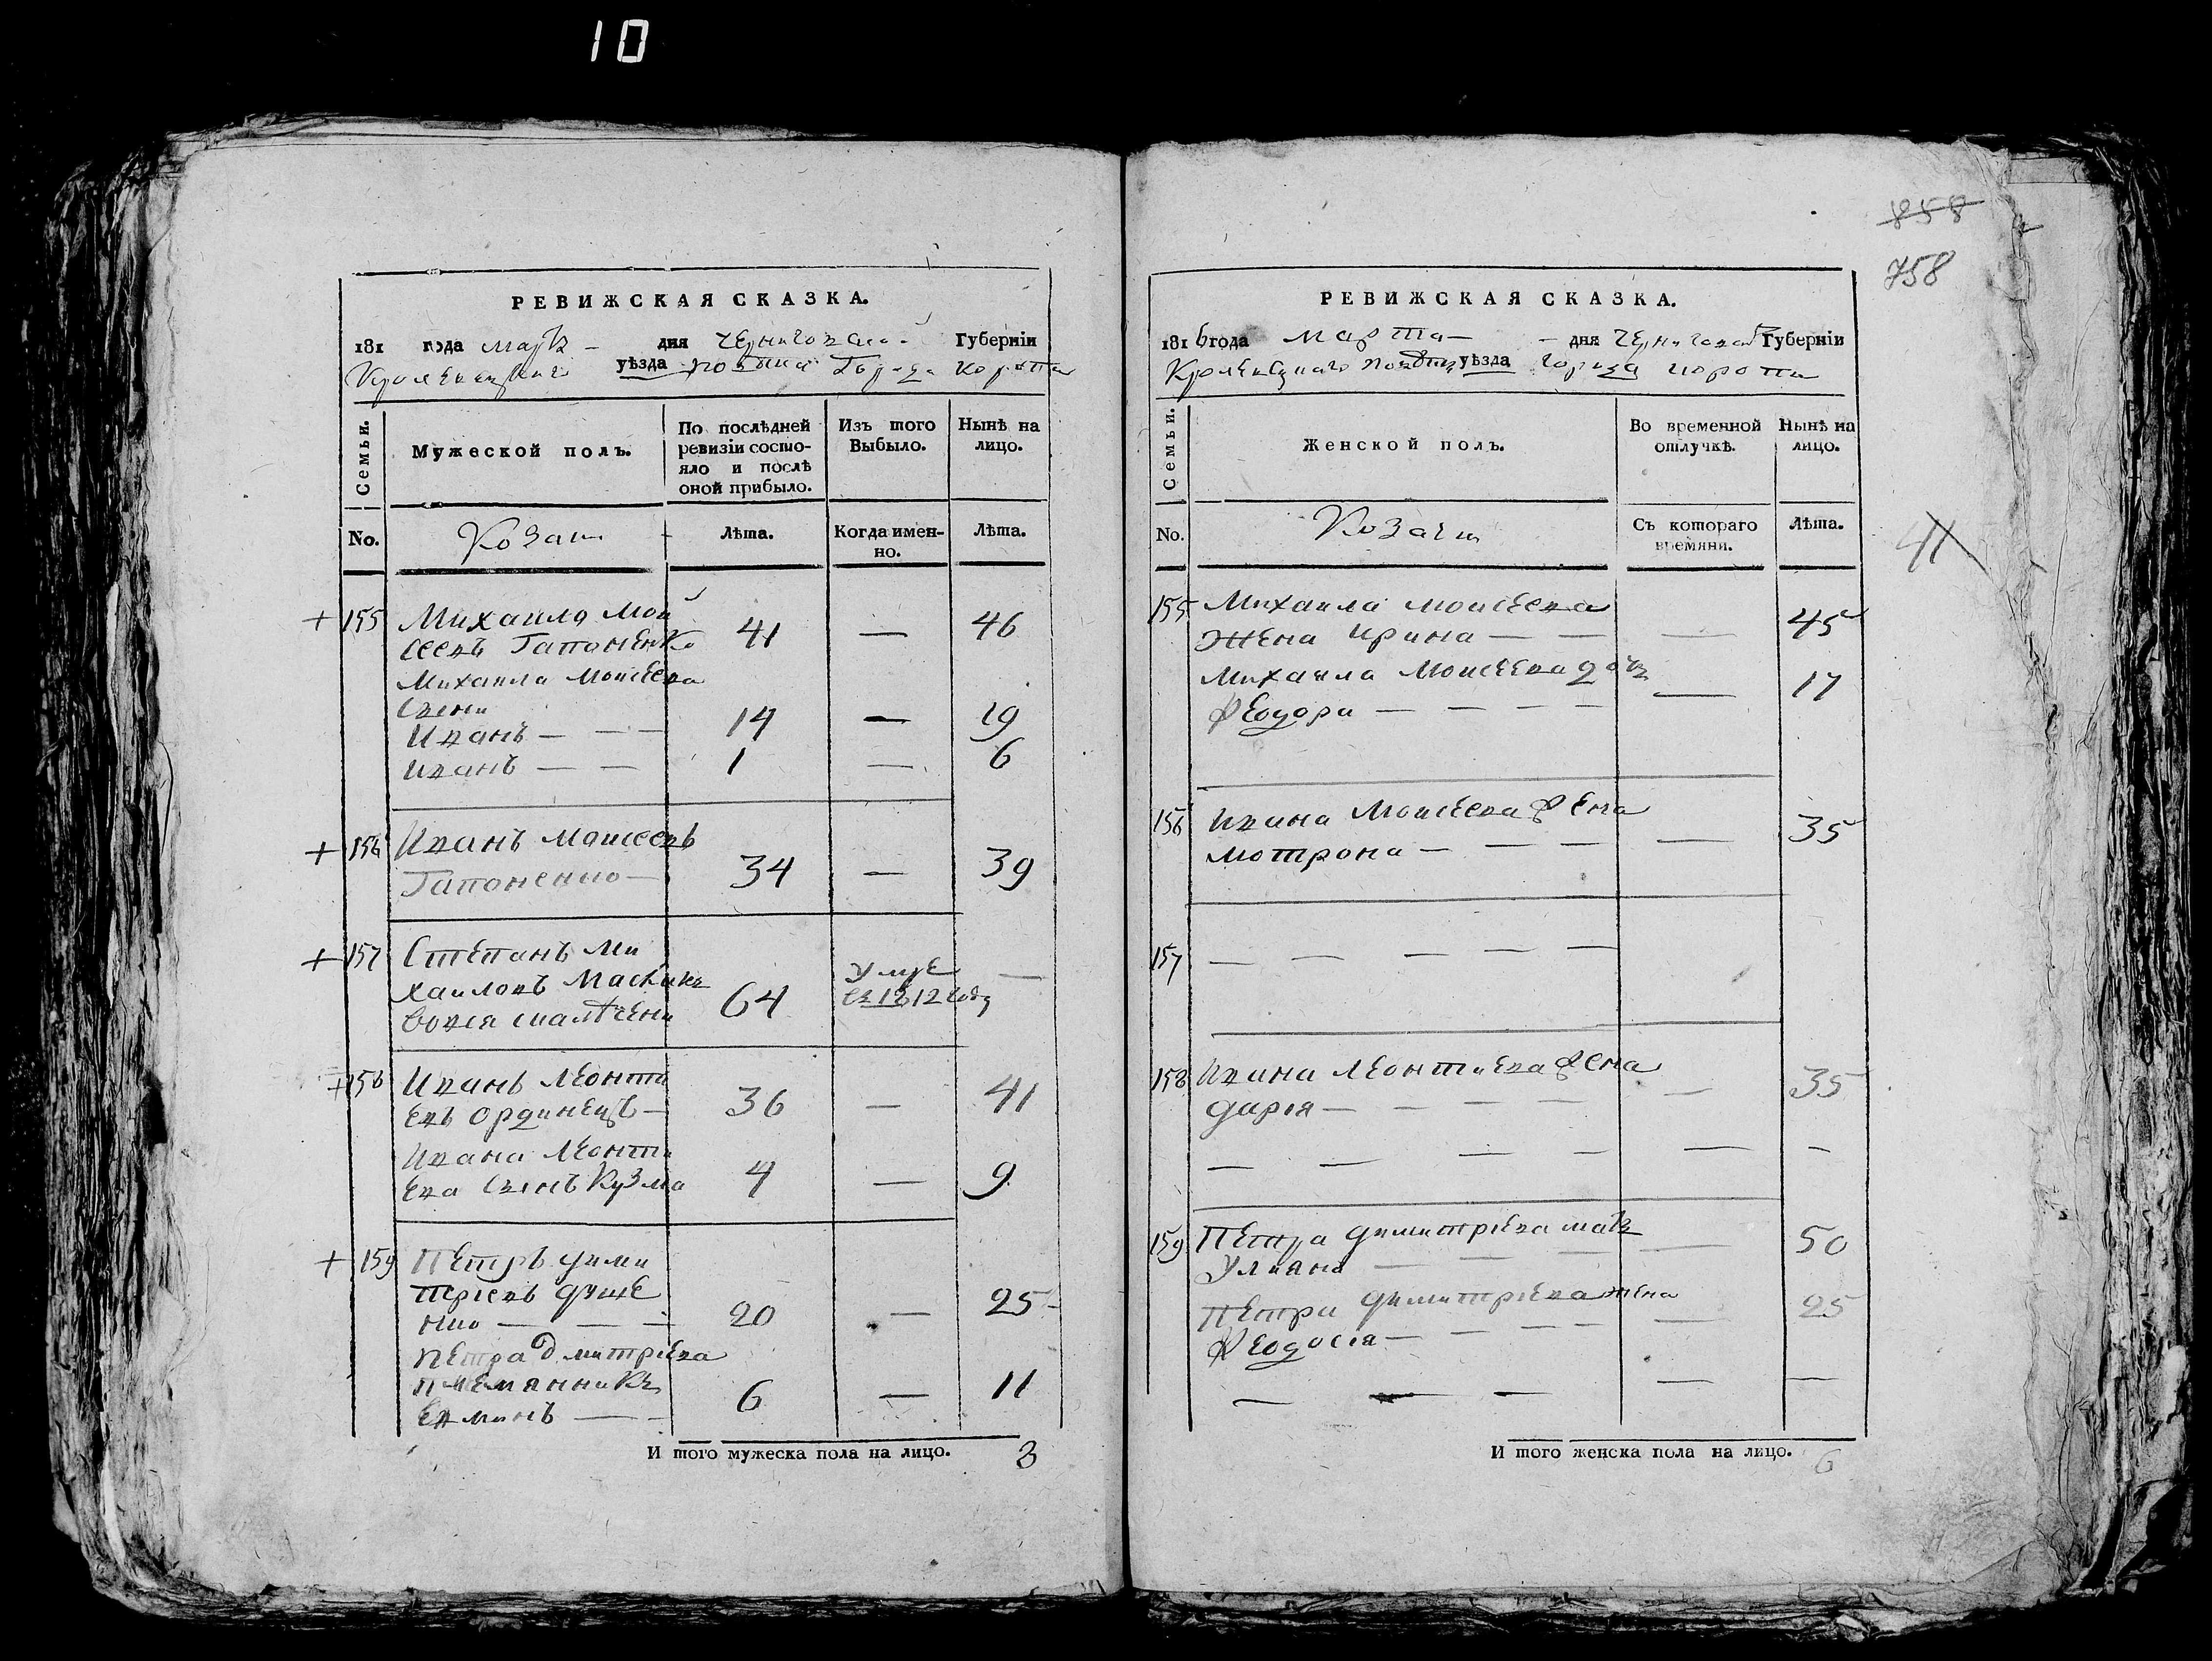 10
РЕВИЖСКАЯ СКАЗКА.
181 года мартъ — дня Черниговской Губерніи
Кролевецкаго уѣзда повѣта Города Коропа
Семьи.
Мужеской полъ.
По послѣдней ревизіи состояло и послѣ оной прибыло.
Изъ того Выбыло.
Нынѣ на лицо.
No.
Козаки
Лѣта.
Когда именно.
Лѣта.
+ 155 Михаило Мой
сеевъ Гапоненко 41 — 46
Михаила Моисеева
Сыни
Иванъ — — — 14 — 19
Иванъ — — 1 — 6
+ 156 Иванъ Моисеевъ
Гапоненко — 34 — 39
+ 157 Степанъ Ми
хаиловъ 64 Умре —
въ 1812 году
+ 158 Иванъ Леонти
евъ Ординецъ — 36 — 41
Ивана Леонти
ева Сынъ Кузма 4 — 9
+ 159 Петръ Дими
тріевъ Душе
нко — — — 20 — 25 -
Петра Дмитріева
племянникъ 6 — 11
И того мужеска пола на лицо. 3
858
758
РЕВИЖСКАЯ СКАЗКА.
1816 года марта — — дня Черниговской Губерніи
Кролевецкаго Повѣта уѣзда города Коропа
Семьи.
Женской полъ.
Во временной отлучкѣ.
Нынѣ на лицо.
No.
Козачки
Съ котораго времяни.
Лѣта.
41
155 Михаила Моисеева
Жена Ирина — — — 45
Михаила Моисеева дочь — 17
Феодора — — — —
156 Ивана Моисеева Жена — 35
Мотрона — — —
157 — — — — —
158 Ивана Леонтиева Жена — 35
Дарія — — — —
— — — — — —
159 Петра Димитріева мать — 50
Улиана — — —
Петра Димитріева жена — 25
Феодосія — — — —
— — — — —
И того женска пола на лицо. 6